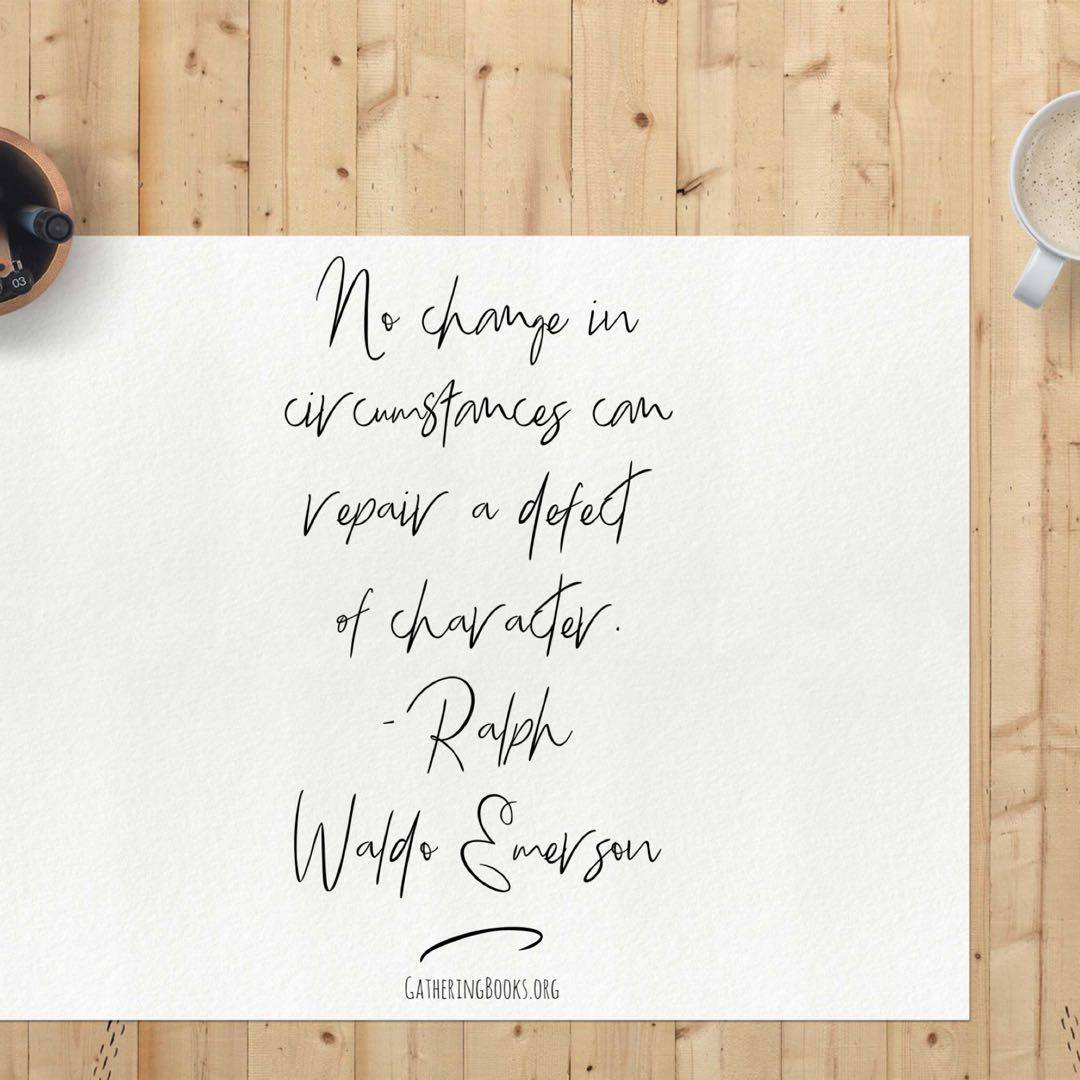 03
No change in
circumstances can
repair a defect
of character.
- Ralph
Waldo Emerson
GatheringBooks.org